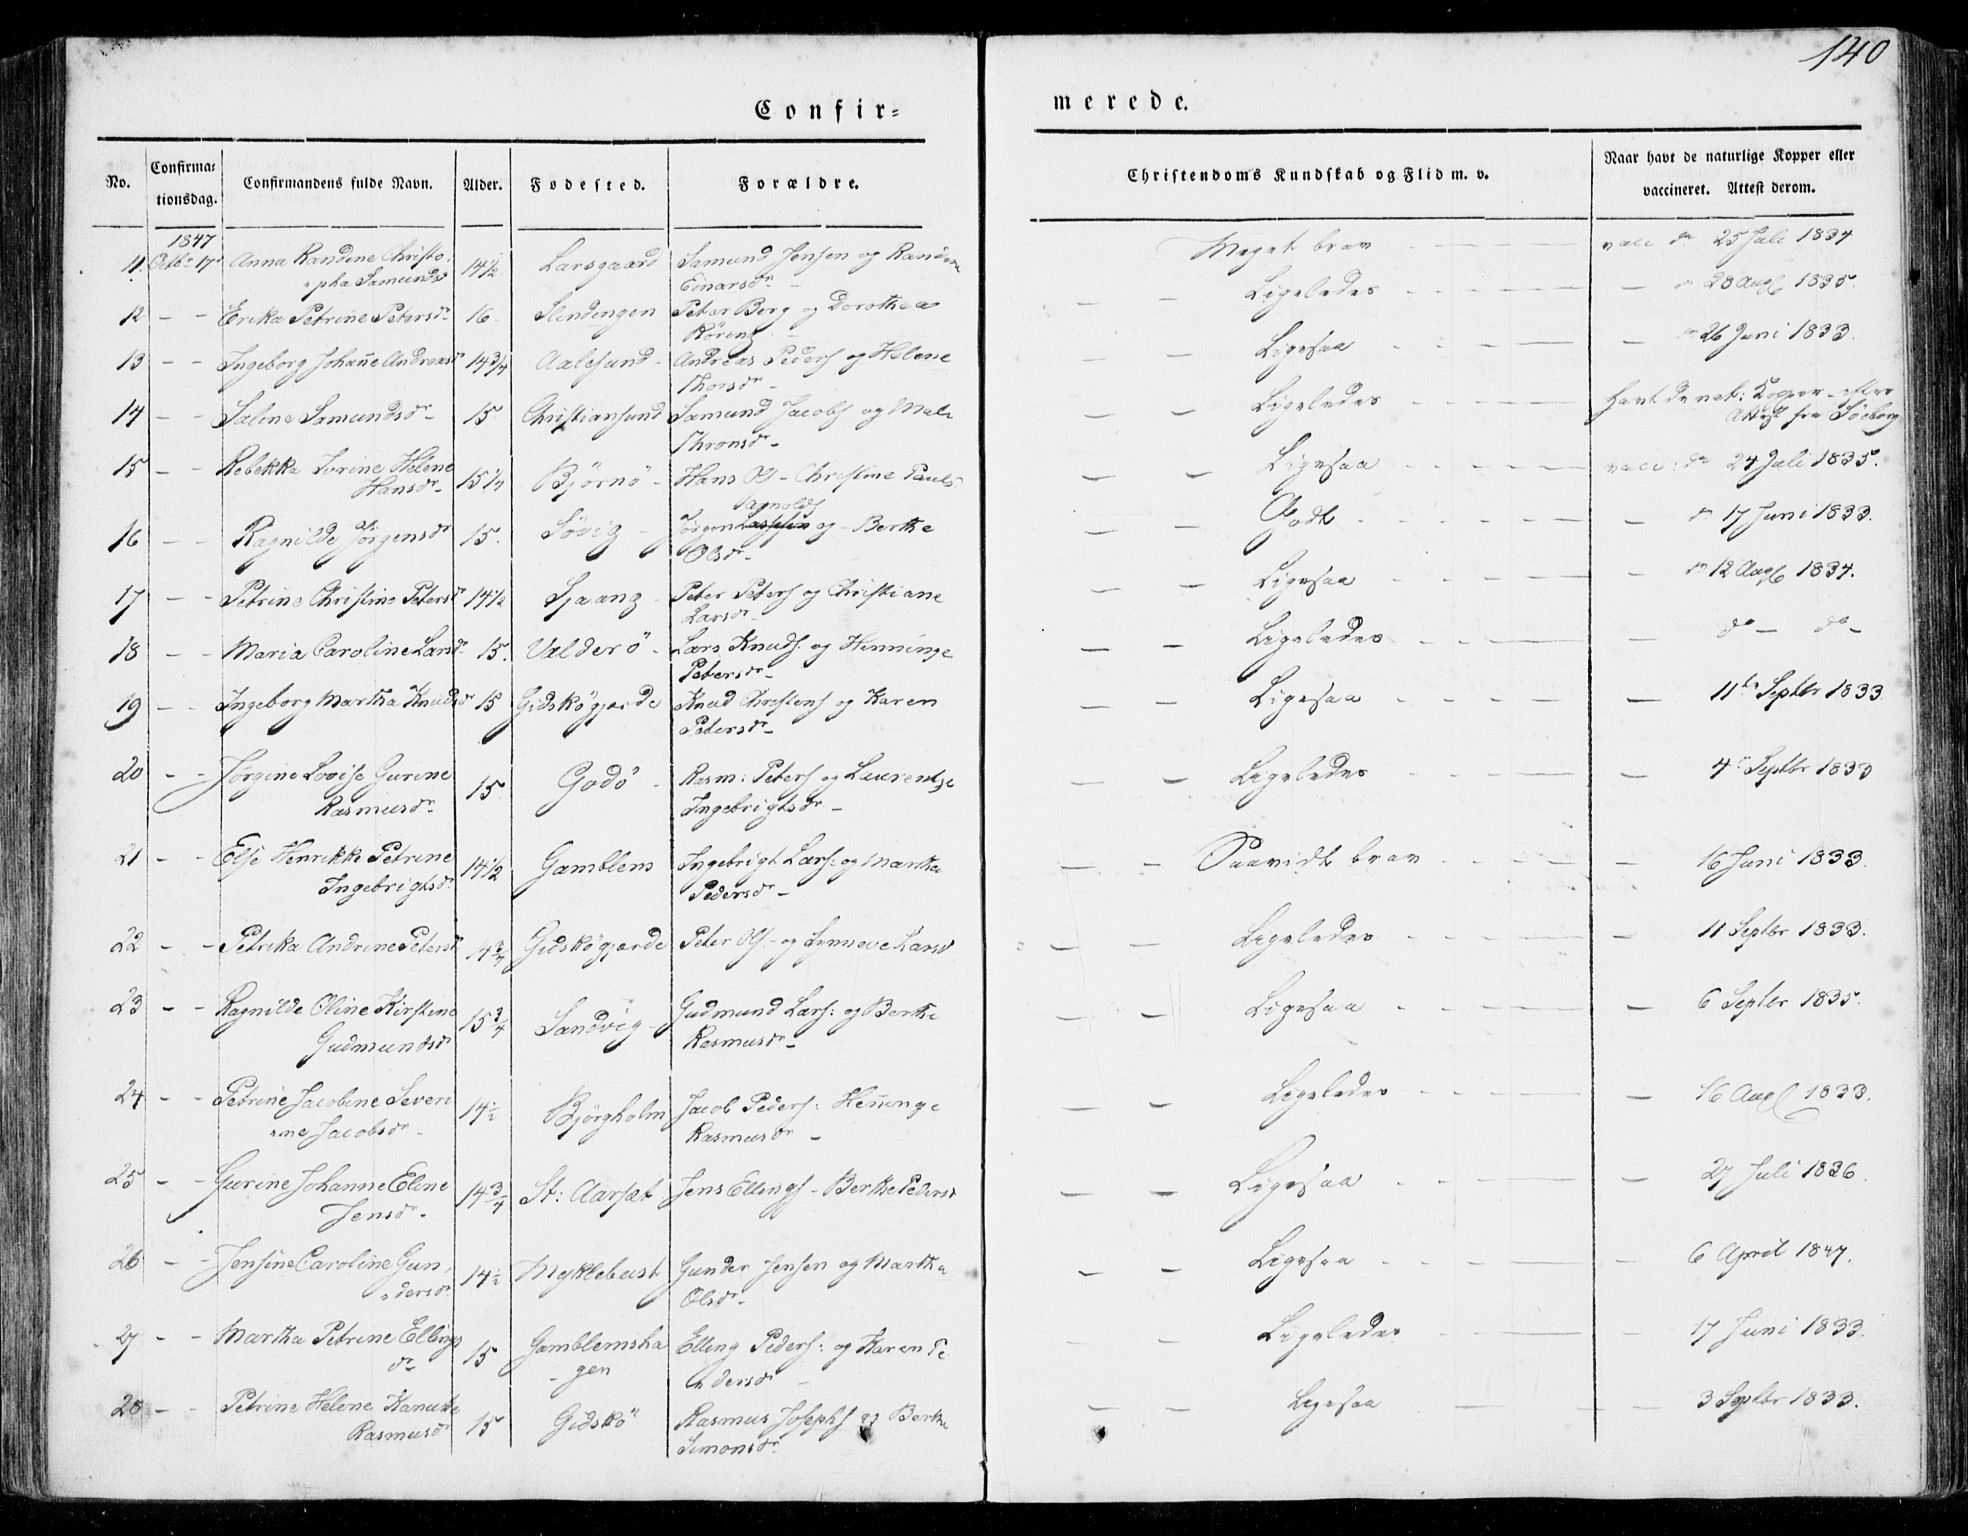 140
Confir=
merede.
No.
Confirma=
tionsdag.
Confirmandens fulde Navn.
Alder.
Fødested.
Forældre.
Christendoms Kundskab og Flid m. v.
Naar havt de naturlige Kopper eller
vaccineret. Attest derom.
1847
11. Octbr 17 Anna Randine Christo= 14½ Larsgaard Samund Jensen og Randine Meget brav vacc d 25 Juli 1834
pha Samundsdr Einarsdr
12 - - Erika Petrine Petersdr 16 Slindingen Peter Berg og Dorothea Ligeledes 28 Aug 1835.
13 - - Ingeborg Johanne Andreasdr 14¾ Aalesund Andreas Peders og Helene Ligesaa 26 Juni 1833.
Thorsdr
14 - - Saline Samundsdr 15 Christiansund Samund Jacobs og Mali Ligeledes havt de nat: Kopper efter
Thronsdr Attest fra Söeborg
15 - - Rebekka Ivrine Helene 15¼ Björnö Hans Ols - Christine Pauls Ligesaa vacc: d 24 Juli 1835.
Hansdr
16 - - Ragnilde Jörgensdr 15. Sövig Jörgen og Berthe Godt 17 Juni 1833.
Olsdr
17 - - Petrine Christine Petersdr 14½ Peter Peters og Christiane Ligesaa 12 Aug 1834.
Larsdr
18 - - Maria Caroline Larsdr 15. Valderö Lars Knuds. og Henninge Ligeledes do - do -
Petersdr
19 - - Ingeborg Martha Knudsdr 15 Gidskögjerde Knud Christens og Karen Ligesaa 11te Septbr 1833
Petersdr
20 - - Jörgine Lovise Gurine 15 Godö Rasm: Peters og Laurentze Ligeledes 4 Septbr 1833
Rasmusdr Ingebrigtsdr
21 - - Else Henrikke Petrine 14½ Gamblem Ingebrigt Lars: og Marthe Saavidt brav 16 Juni 1833.
Ingebrigtsdr Pedersdr
22 - - Petrika Andrine Petersdr 14¾ Gidskögjerde Peter Ols - og Synneve Larsd Ligeledes 11 Septbr 1833.
23 - - Ragnilde Oline Kirstine 15¾ Sandvig Gudmund Lars: og Berthe Ligesaa 6 Septbr 1835.
Gudmundsdr Rasmusdr
24 - - Petrine Jacobine Severi 14½ Björgholm Jacob Peders: Henninge Ligeledes 16 Aug 1833.
ne Jacobsdr Rasmusdr
25 - - Gurine Johanne Eline 14¾ St: Aarset Jens Ellings - Berthe Pedersd Ligesaa 27 Juli 1836.
Jensdr
26 - - Jensine Caroline Gun= 14½ Myklebust Gunder Jensen og Martha Ligesaa 6 April 1847.
dersdr Olsdr
27 - - Martha Petrine Ellings 15 Gamblemsha Elling Peders: og Karen Pe Ligeledes 17 Juni 1833.
dr gen dersdr
28 - - Petrine Helene Kanutte 15 Gidskö Rasmus Josephs og Berthe Ligesaa 3 Septbr 1833.
Rasmusdr Simonsdr